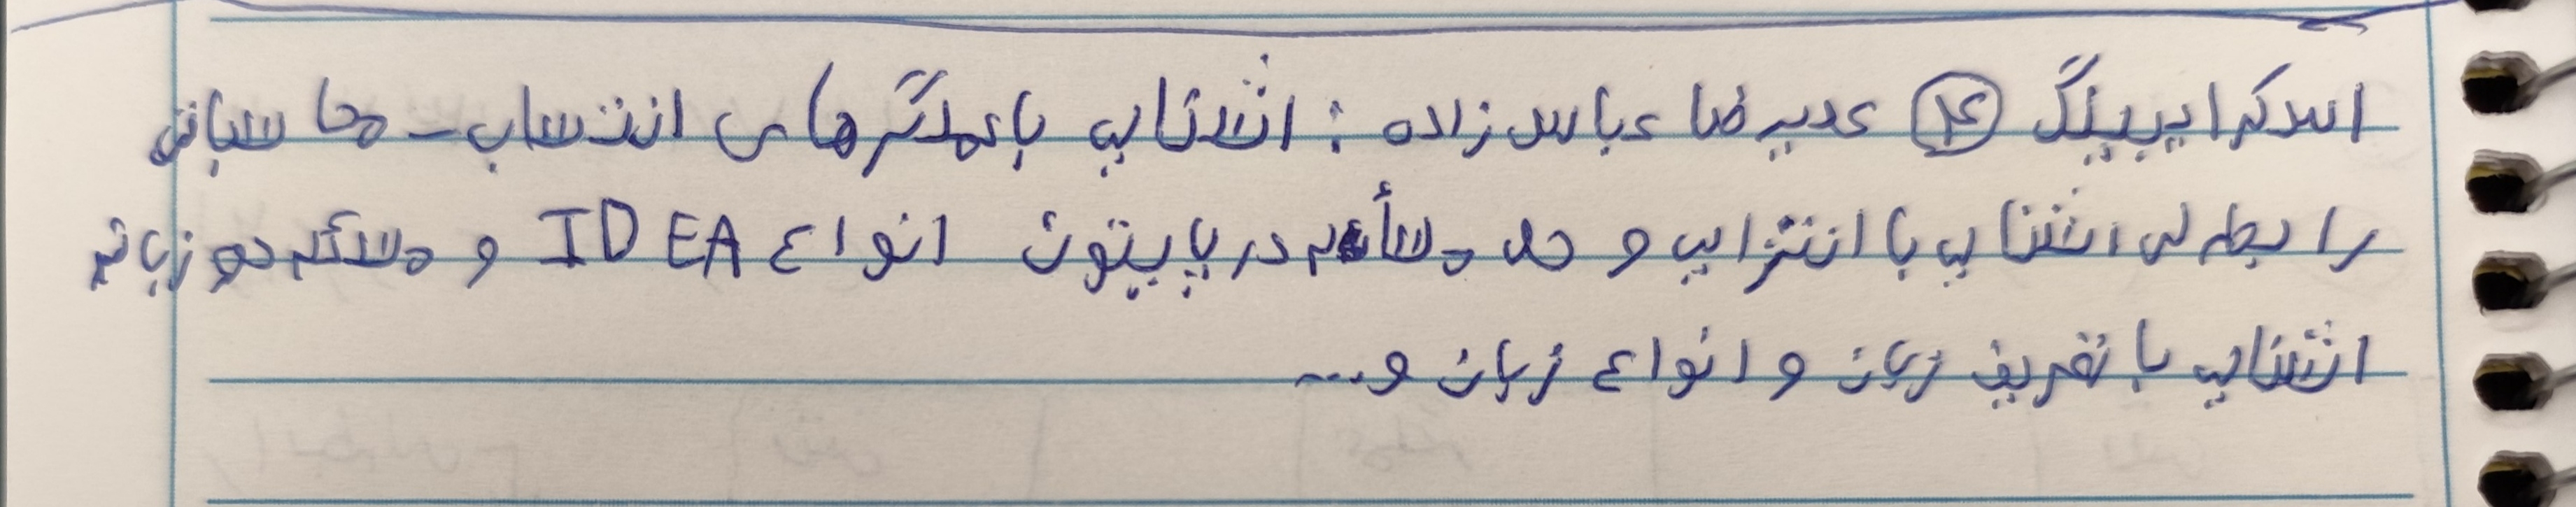 اسکرایپینگ ④ علیرضا عباس زاده : اشنایی با عملگرهای انتساب - محاسباتی
رابطه ی اشنایی با انتزایی و حل مسأله در پایتون انواع IDEA و مسائله دو زبانه
اشنایی با تعریف زبان و انواع زبان و ...